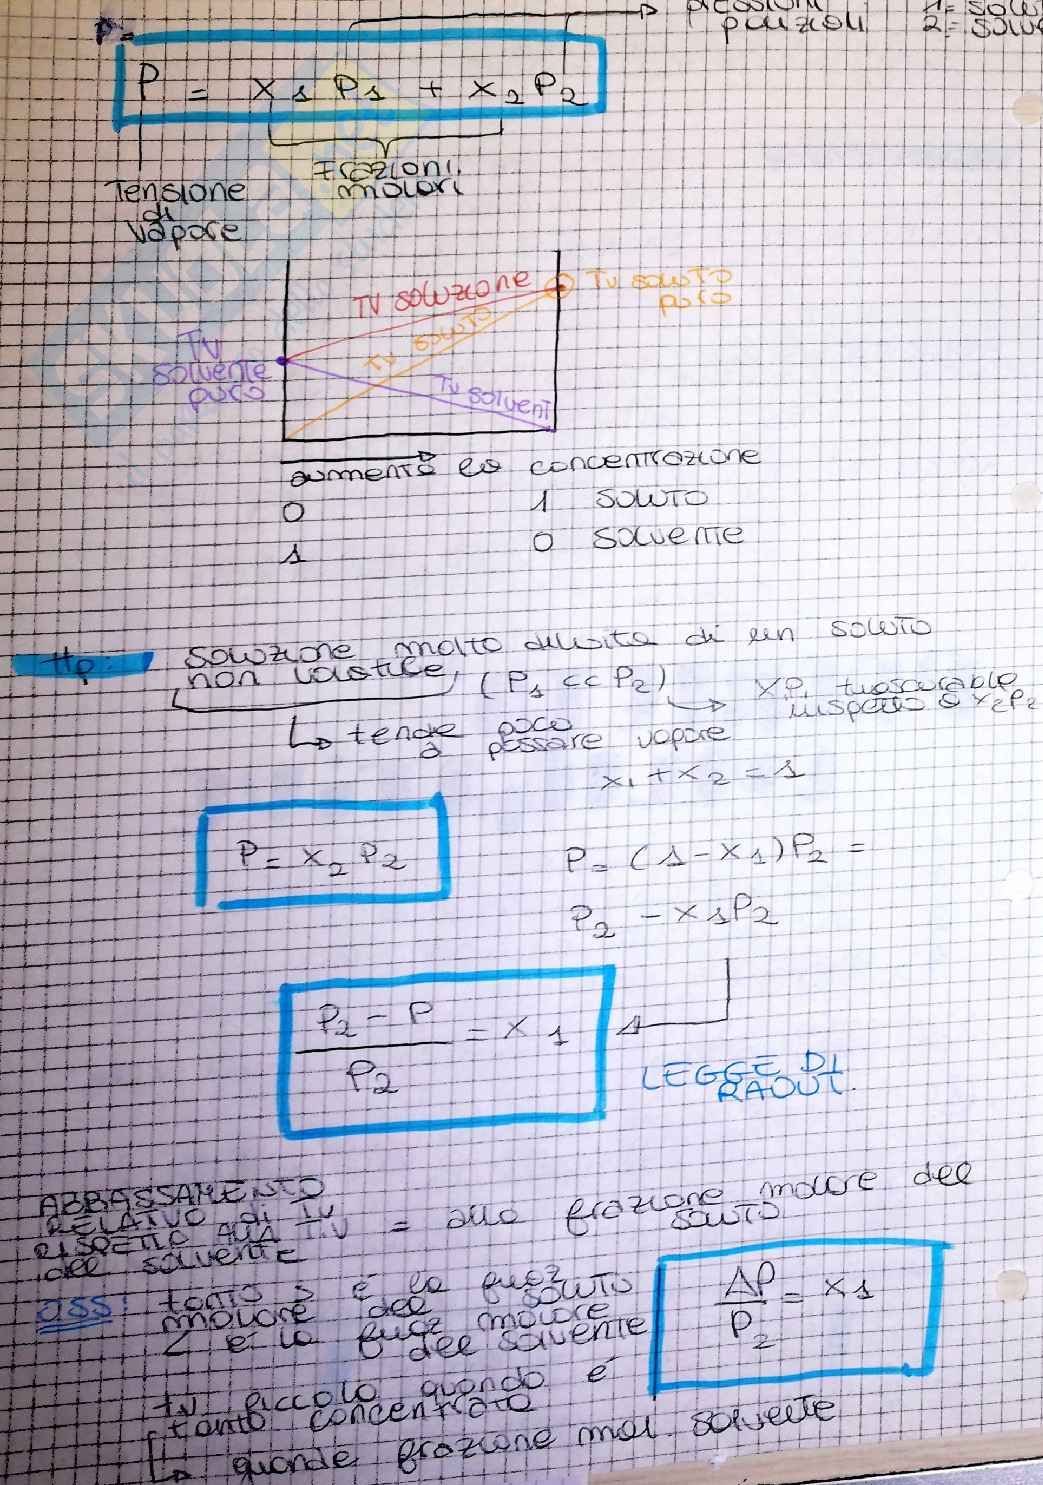 P=
pressioni
parziali
1= solu
2= solve
P = x1 P1 + x2 P2
Frazioni
molari
Tensione
di
vapore
TV soluzione
TV soluto
puro
TV soluto
TV
solvente
puro
TV solvent
aumenta la concentrazione
0 1 soluto
1 0 solvente
Hp: soluzione molto diluita di un soluto
non volatile, (P1 << P2)
x1P1 trascurabile
rispetto a x2P2
tende poco
a passare vapore
x1 + x2 = 1
P = x2 P2
P = (1 - x1) P2 =
P2 - x1P2
P2 - P
= x1
P2
LEGGE DI
RAOUL.
ABBASSAMENTO
RELATIVO di TV
RISPETTO ALLA T.V
del solvente
= alla frazione molare del
soluto
oss: tanto > è la fraz
molare del soluto
< è la fraz molare
del solvente
ΔP
= x1
P2
tv piccolo quando è
tanto concentrato
quando frazione mol. solvente